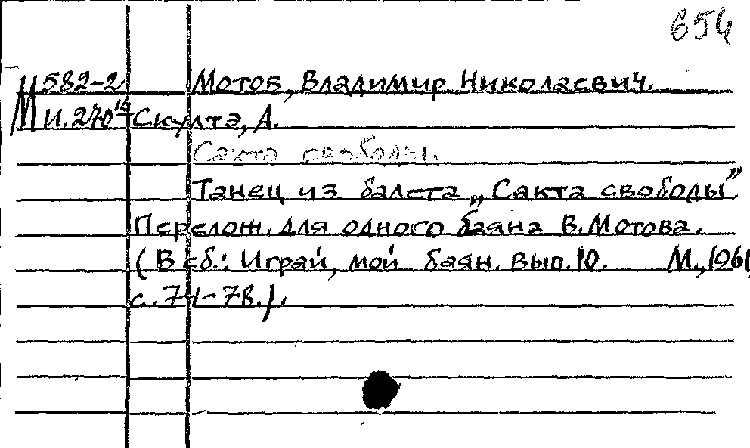 654
Ц582-2 Мотов, Владимир Николаевич.
М И.270 Скулте, А.
Сакта свободы.
Танец из балета „Сакта свободы"
Перелож. для одного баяна В. Мотова.
(В сб.: Играй, мой баян. Вып. 10. М., 1961
с. 74-78.).